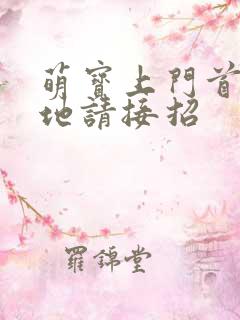 萌寶上門首
地請接招
羅錦堂